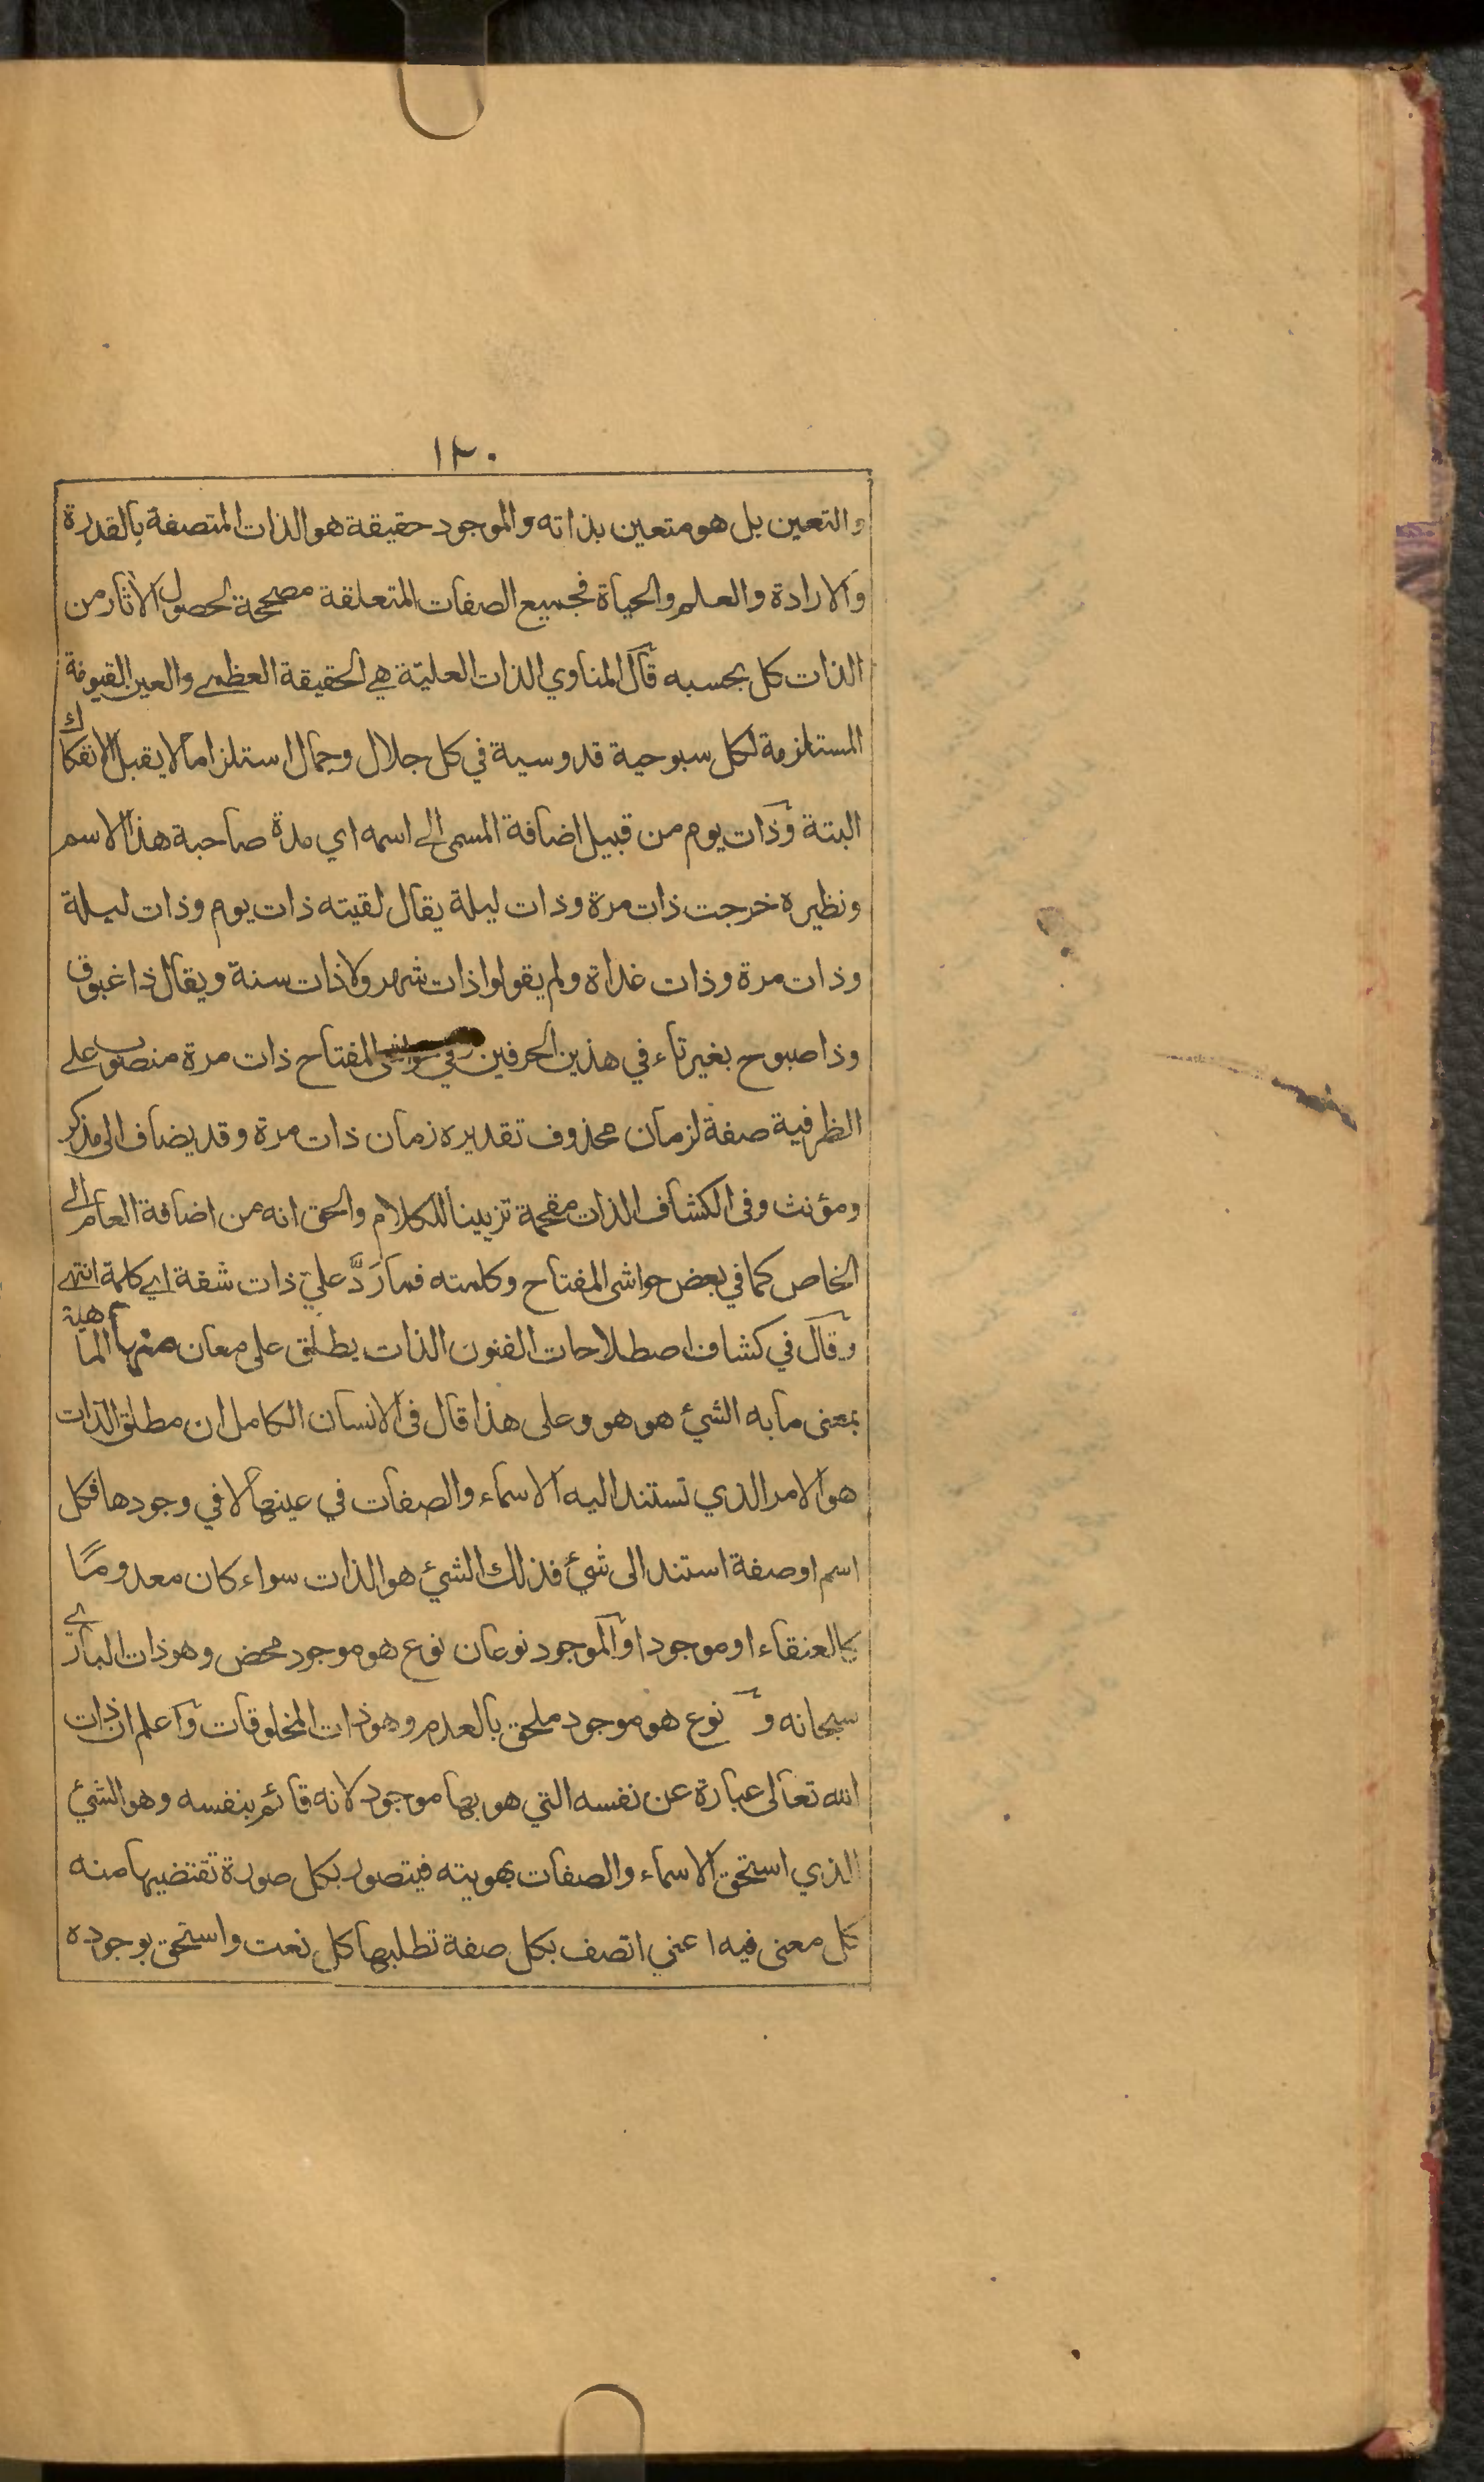 ١٣٠
والتعين بل هو متعين بذاته والموجود حقيقة هو الذات المتصفة بالقدرة
والارادة والعلم والحياة فجميع الصفات المتعلقة مصححة لحصول الآثار من
الذات كل بحسبه قال المناوي الذات العليّة هي الحقيقة العظمى والعين القيومة
المستلزمة لكل سبوحية قدوسية في كل جلال وجمال استلزاما لا يقبل الانفكاك
البتة وذات يوم من قبيل اضافة المسمى الى اسمه اي مدة صاحبة هذا الاسم
ونظيره خرجت ذات مرة وذات ليلة يقال لقيته ذات يوم وذات ليلة
وذات مرة وذات غداة ولم يقولوا ذات شهر ولا ذات سنة ويقال ذا غبوق
وذا صبوح بغير تاء في هذين الحرفين وفي المفتاح ذات مرة منصوب على
الظرفية صفة لزمان محذوف تقديره زمان ذات مرة وقد يضاف الى مذكر
ومؤنث وفى الكشاف الذات مقحمة تزيينا للكلام والحق انه من اضافة العام الى
الخاص كما في بعض حواشى المفتاح وكلمته فما رَدَّ عليّ ذات شفة اي كلمة انتهى
وقال في كشاف اصطلاحات الفنون الذات يطلق على معان منها الماهية
بمعنى ما به الشيئ هو هو وعلى هذا قال فى الانسان الكامل ان مطلق الذات
هو الامر الذي تستند اليه الاسماء والصفات في عينها لا في وجودها فكل
اسم او صفة استند الى شيئ فذلك الشيئ هو الذات سواء كان معدومًا
كالعنقاء او موجودا والموجود نوعان نوع هو موجود محض وهو ذات الباري
سبحانه و نوع هو موجود ملحق بالعدم وهو ذات المخلوقات واعلم ان ذات
الله تعالى عبارة عن نفسه التي هو بها موجود لانه قائم بنفسه وهو الشيئ
الذي استحق الاسماء والصفات بهويته فيتصور بكل صورة تقتضيها منه
كل معنى فيه اعني اتصف بكل صفة تطلبها كل نعت واستحق بوجوده